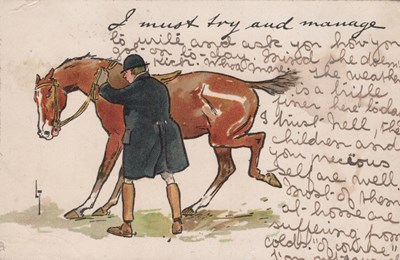 I must try and manage
to write and ask you how you
got on to-day. Mind the
Kick. The weather
is a trifle
finer here today
I trust all, the
children and
your precious
self are well
Most of them
at home are
suffering from
colds "of course"